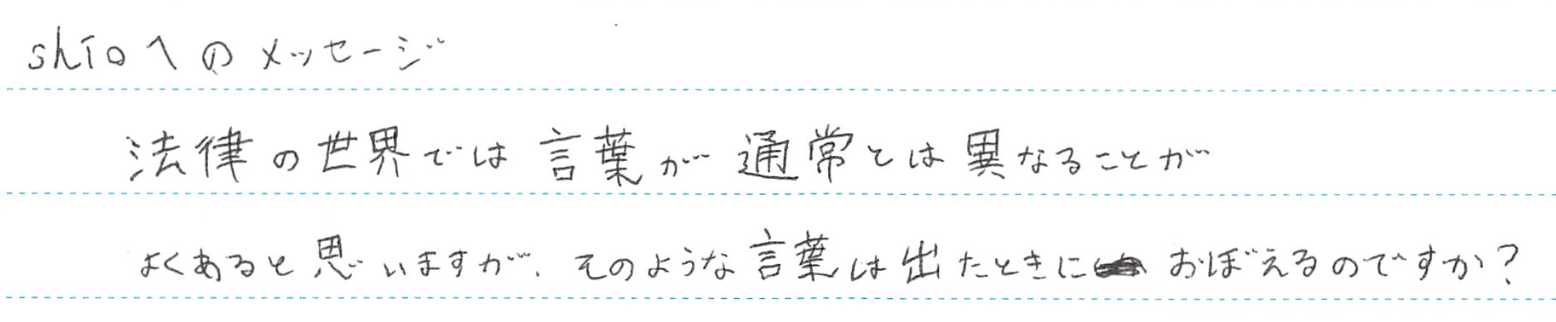 shioへのメッセージ
法律の世界では言葉が通常とは異なることが
よくあると思いますが、そのような言葉は出たときにおぼえるのですか?